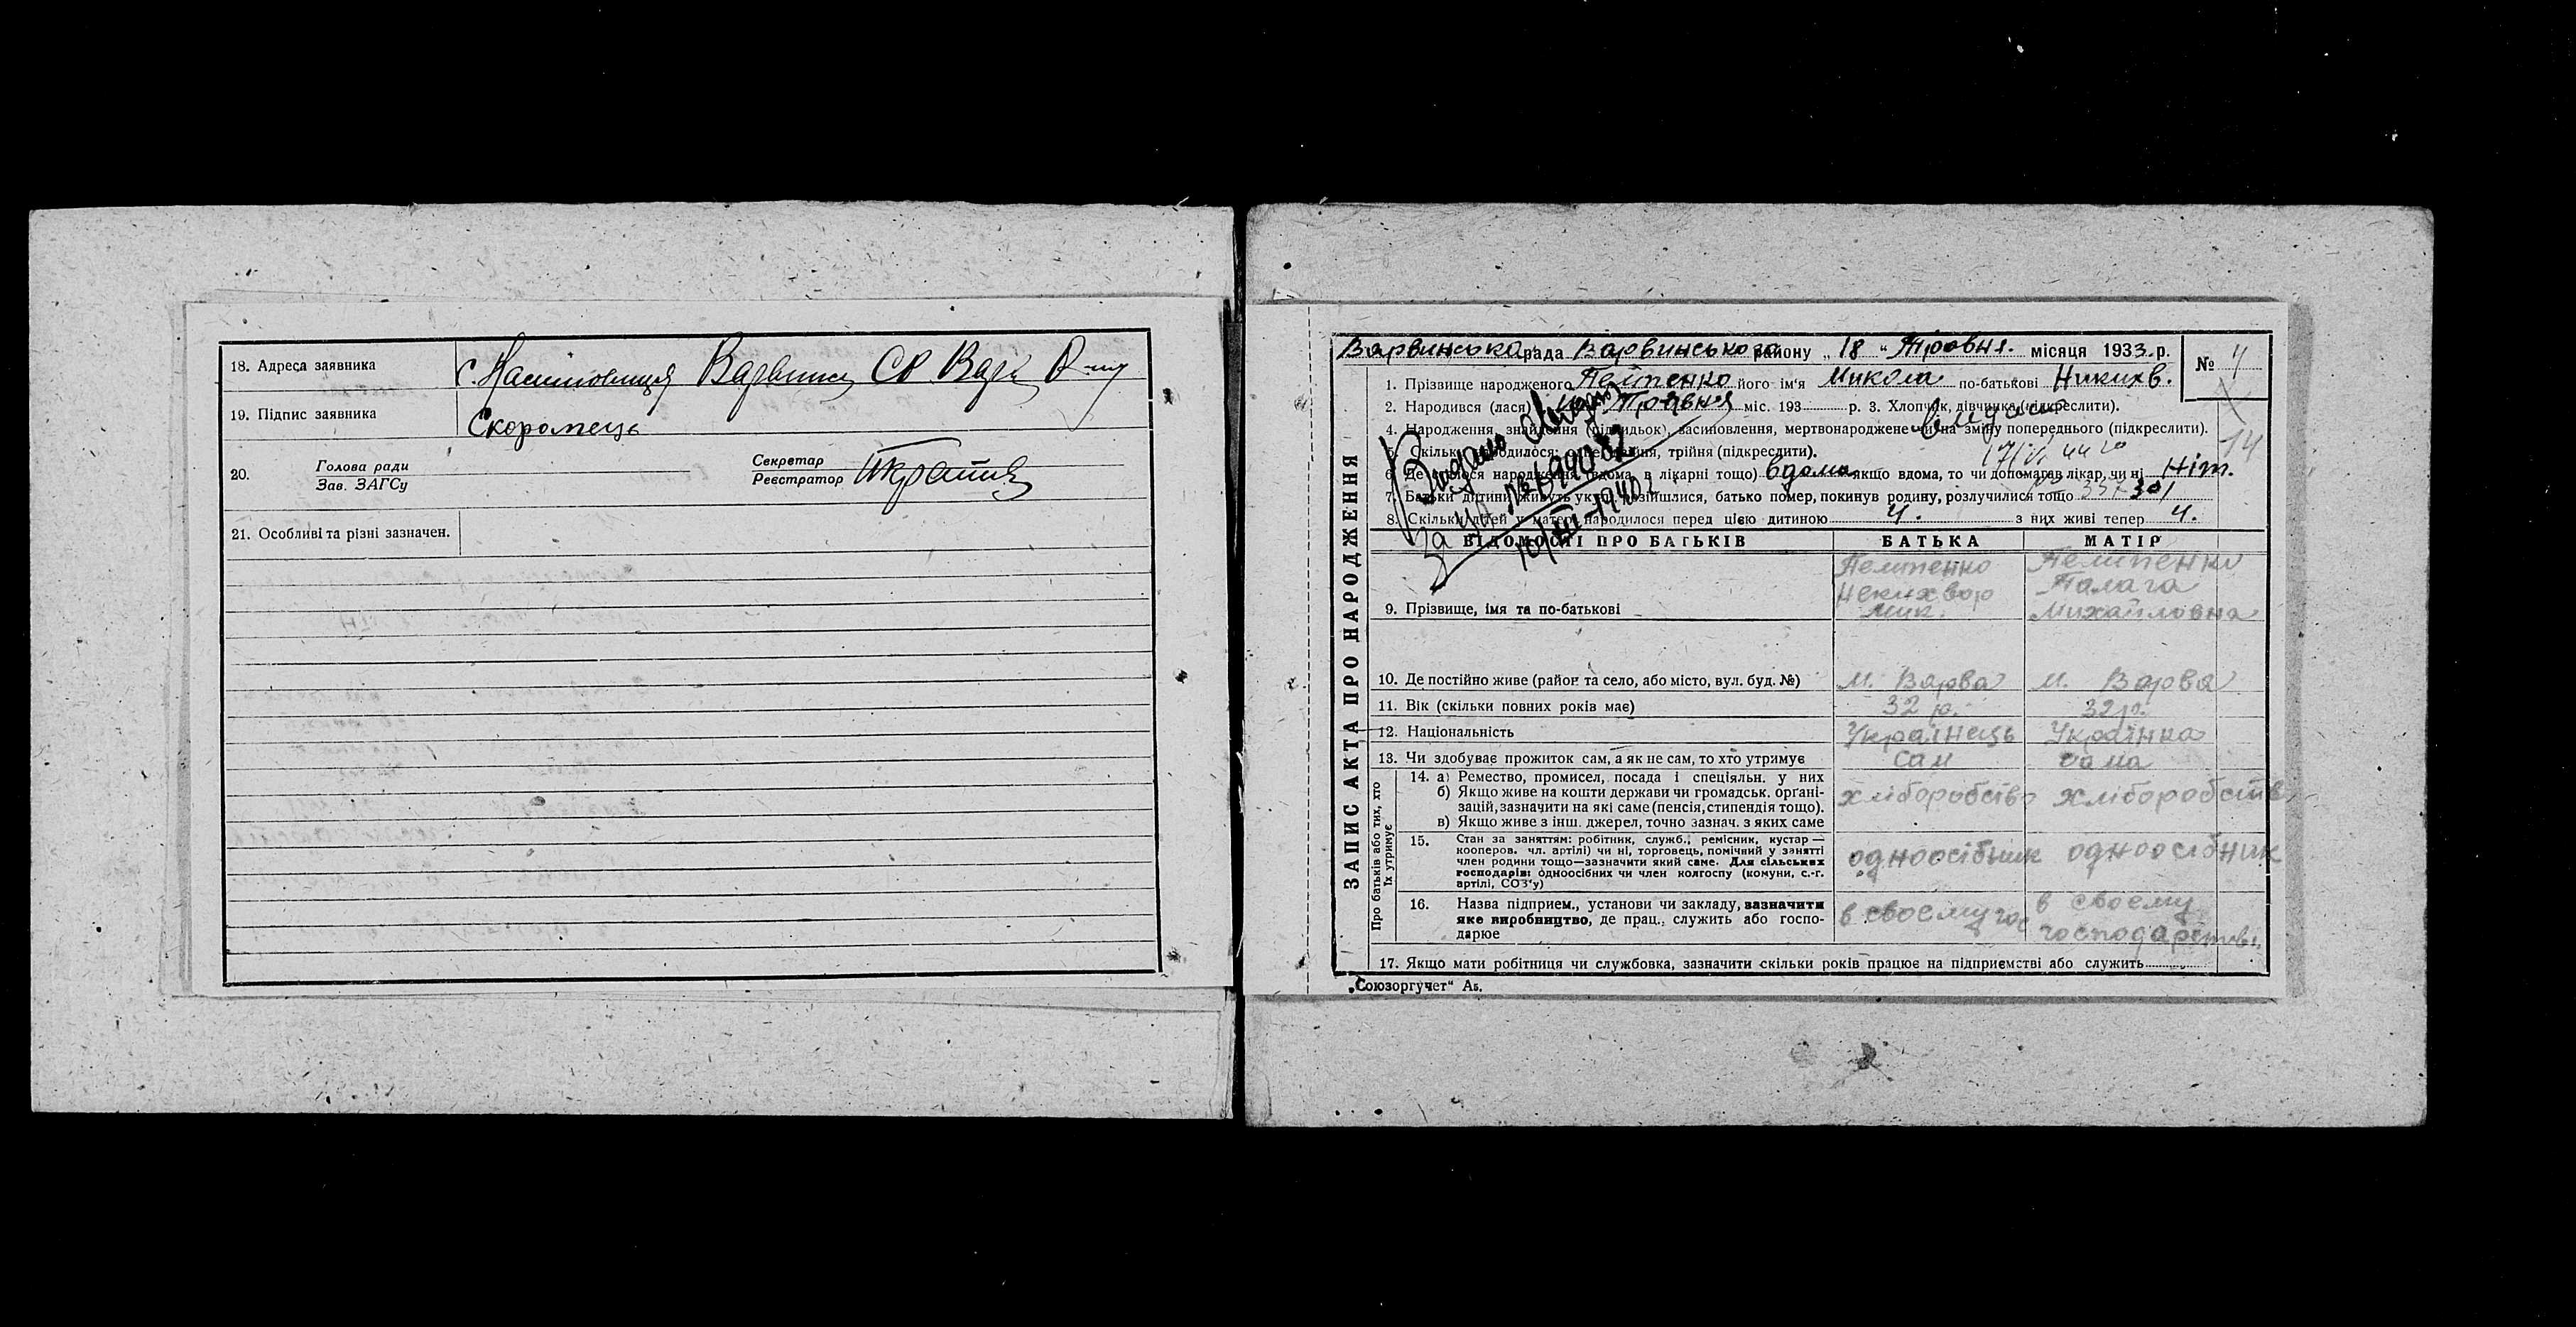 18. Адреса заявника с. Настовиця Варвинс СР Варв Р-ну
19. Підпис заявника Скоромець
20. Голова ради
Зав. ЗАГСу
Секретар
Реєстратор
21. Особливі та різні зазначен.
ЗАПИС АКТА ПРО НАРОДЖЕННЯ
Варвинська рада Варвинського району „18“ Травня місяця 1933.р. № 4
1. Прізвище народженого його ім'я Микола по-батькові Никихв.
2. Народився (лася) Травня міс. 193 р. 3. Хлопчик, дівчинка (підкреслити).
4. Народження, знайдення (підкидьок), засиновлення, мертвонароджене чи на зміну попереднього (підкреслити).
14
5. Скільки народилося: одне, двійня, трійня (підкреслити).
6. Де відбулося народження (вдома, в лікарні тощо) вдома якщо вдома, то чи допомагав лікар, чи ні Ніт.
7. Батьки дитини живуть укупі, розійшлися, батько помер, покинув родину, розлучилися тощо
8. Скільки дітей у матері народилося перед цією дитиною 4. з них живі тепер 4.
Видано
10/XII-1940
ВІДОМОСТІ ПРО БАТЬКІВ БАТЬКА МАТІР
9. Прізвище, імя та по-батькові Пелипенко Никихвор Мик. Пелипенко Палага Михайловна
10. Де постійно живе (район та село, або місто, вул. буд. №) м. Варва м. Варва
11. Вік (скільки повних років має) 32 р. 32 р.
12. Національність Українець Українка
13. Чи здобуває прожиток сам, а як не сам, то хто утримує сам сама
Про батьків або тих, хто їх утримує
14. а) Ремество, промисел, посада і спеціяльн. у них
б) Якщо живе на кошти держави чи громадськ. орґані-
зацій, зазначити на які саме (пенсія, стипендія тощо). хліборобство хліборобств
в) Якщо живе з інш. джерел, точно зазнач. з яких саме
15. Стан за заняттям: робітник, служб., ремісник, кустар —
кооперов. чл. артілі) чи ні, торговець, помічний у занятті
член родини тощо—зазначити який саме. Для сільських
господарів: одноосібних чи член колгоспу (комуни, с.-г.
артілі, СОЗ'у)
одноосібник одноосібник
16. Назва підприєм., установи чи закладу, зазначити
яке виробництво, де прац., служить або госпо-
дарює
в своєму гос в своєму
господарстві
17. Якщо мати робітниця чи службовка, зазначити скільки років працює на підприємстві або служить
„Союзоргучет“ А5.